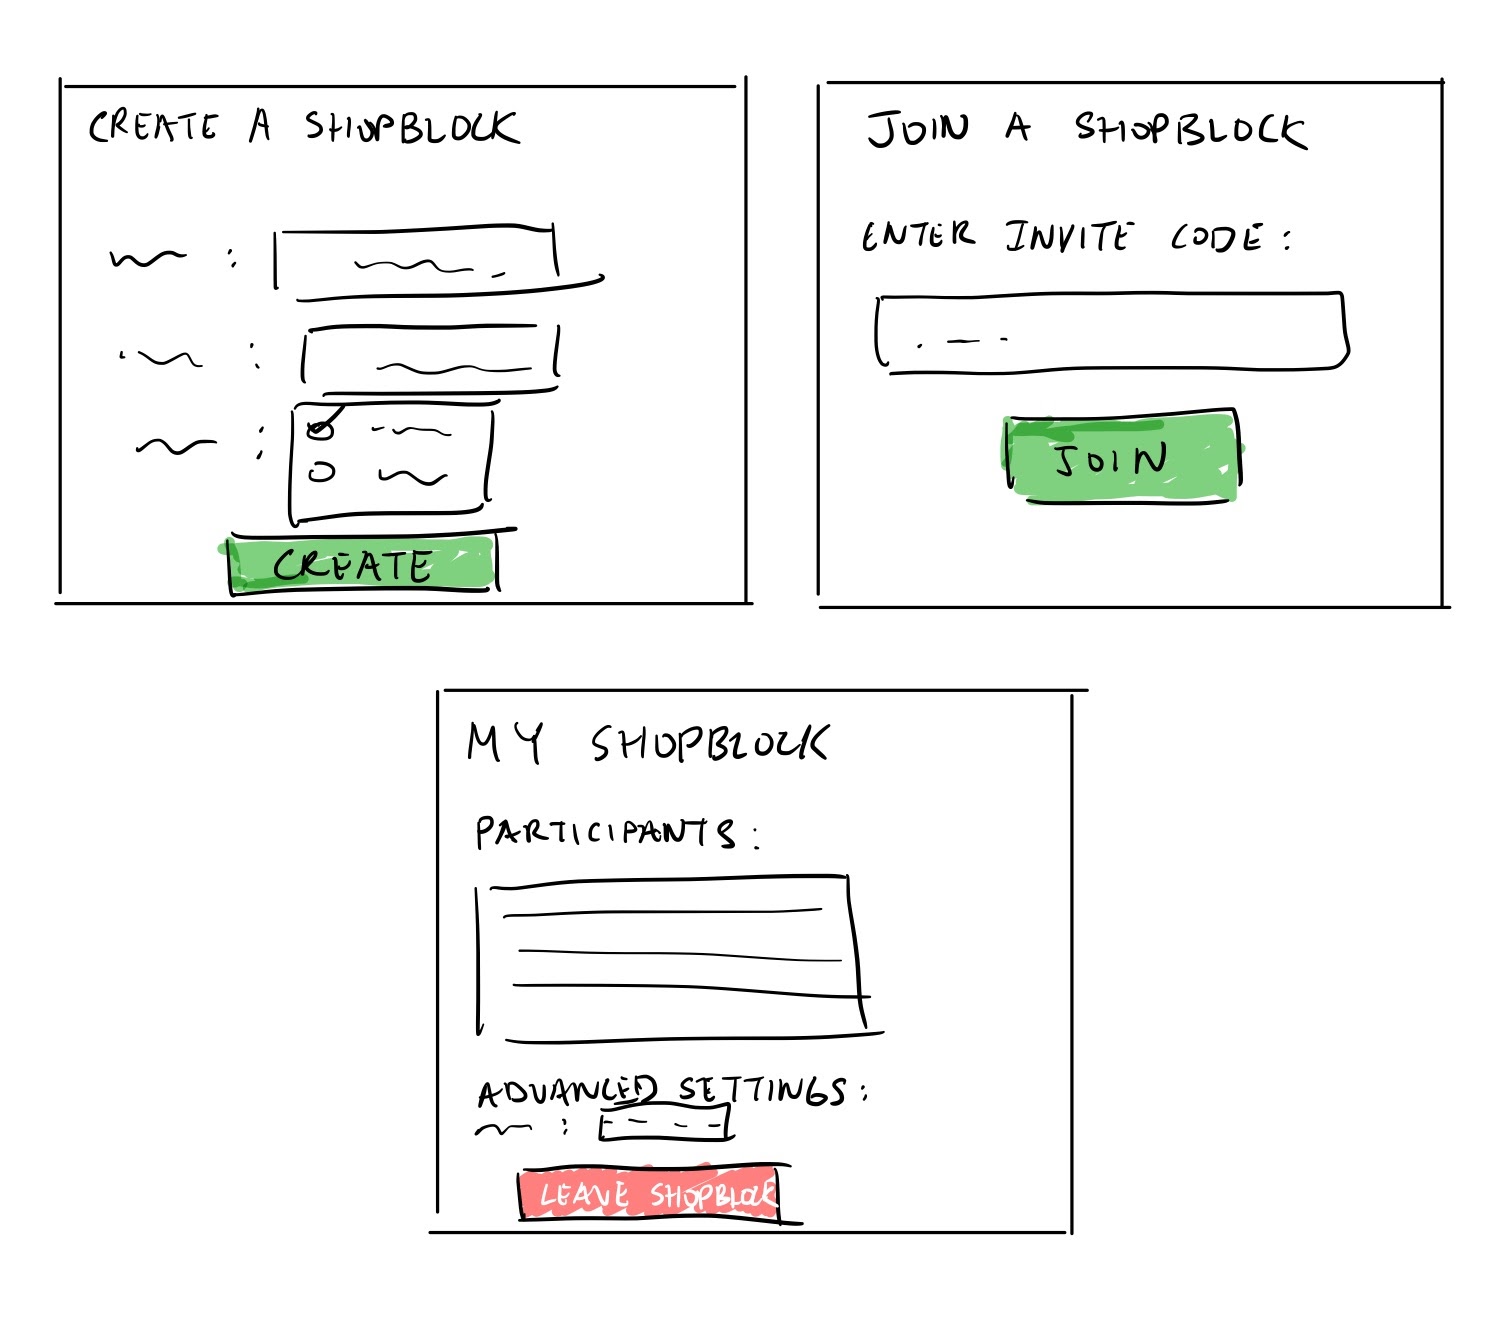 CREATE A SHOPBLOCK
CREATE
JOIN A SHOPBLOCK
ENTER INVITE CODE:
JOIN
MY SHOPBLOCK
PARTICIPANTS:
ADVANCED SETTINGS:
LEAVE SHOPBLOCK